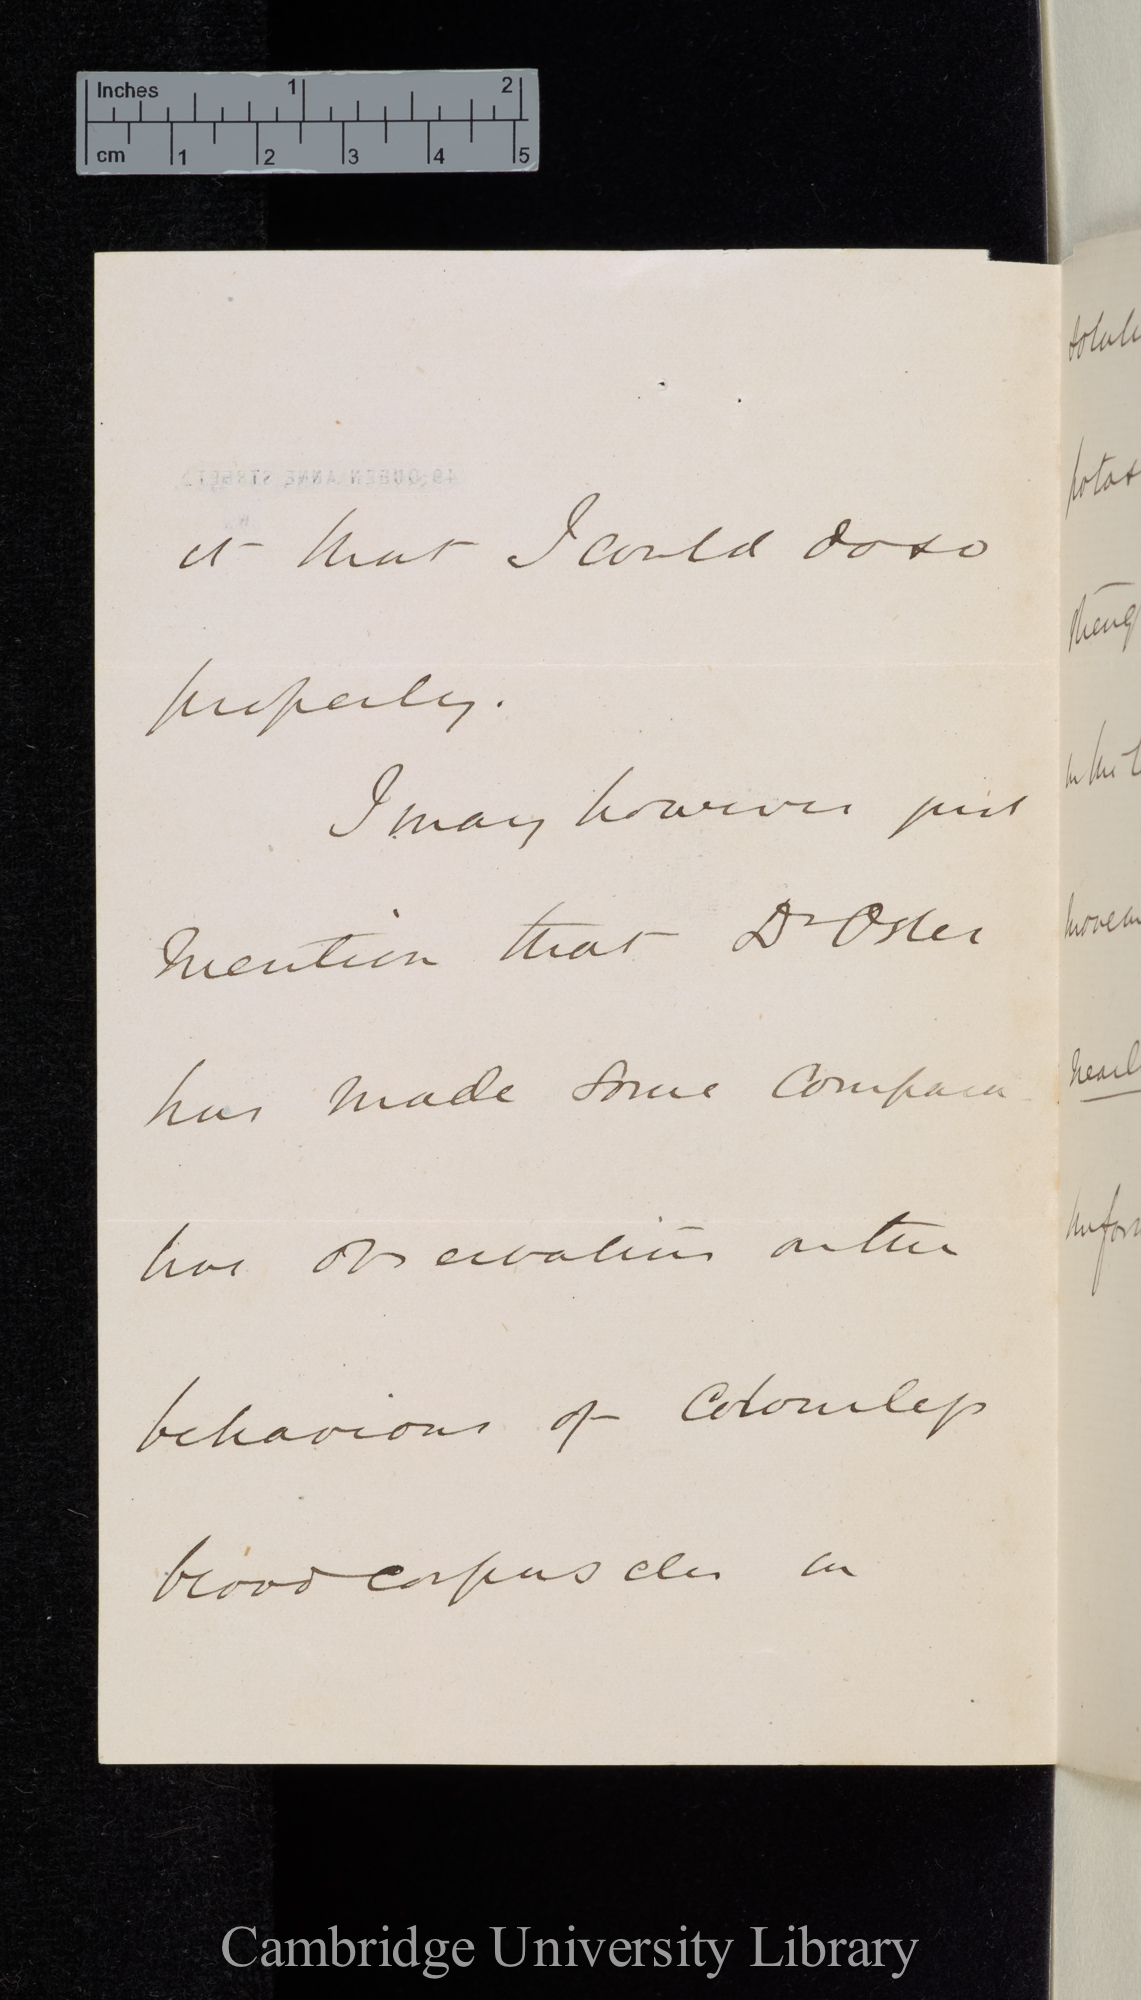 Inches 1 2
cm 1 2 3 4 5
49. QUEEN ANNE STREET,
W.
it that I could do so
properly.
I may however just
mention that Dr Osler
has made some compara
tive observations on the
behaviour of colourless
blood corpuscles in
potas
movem
Cambridge University Library